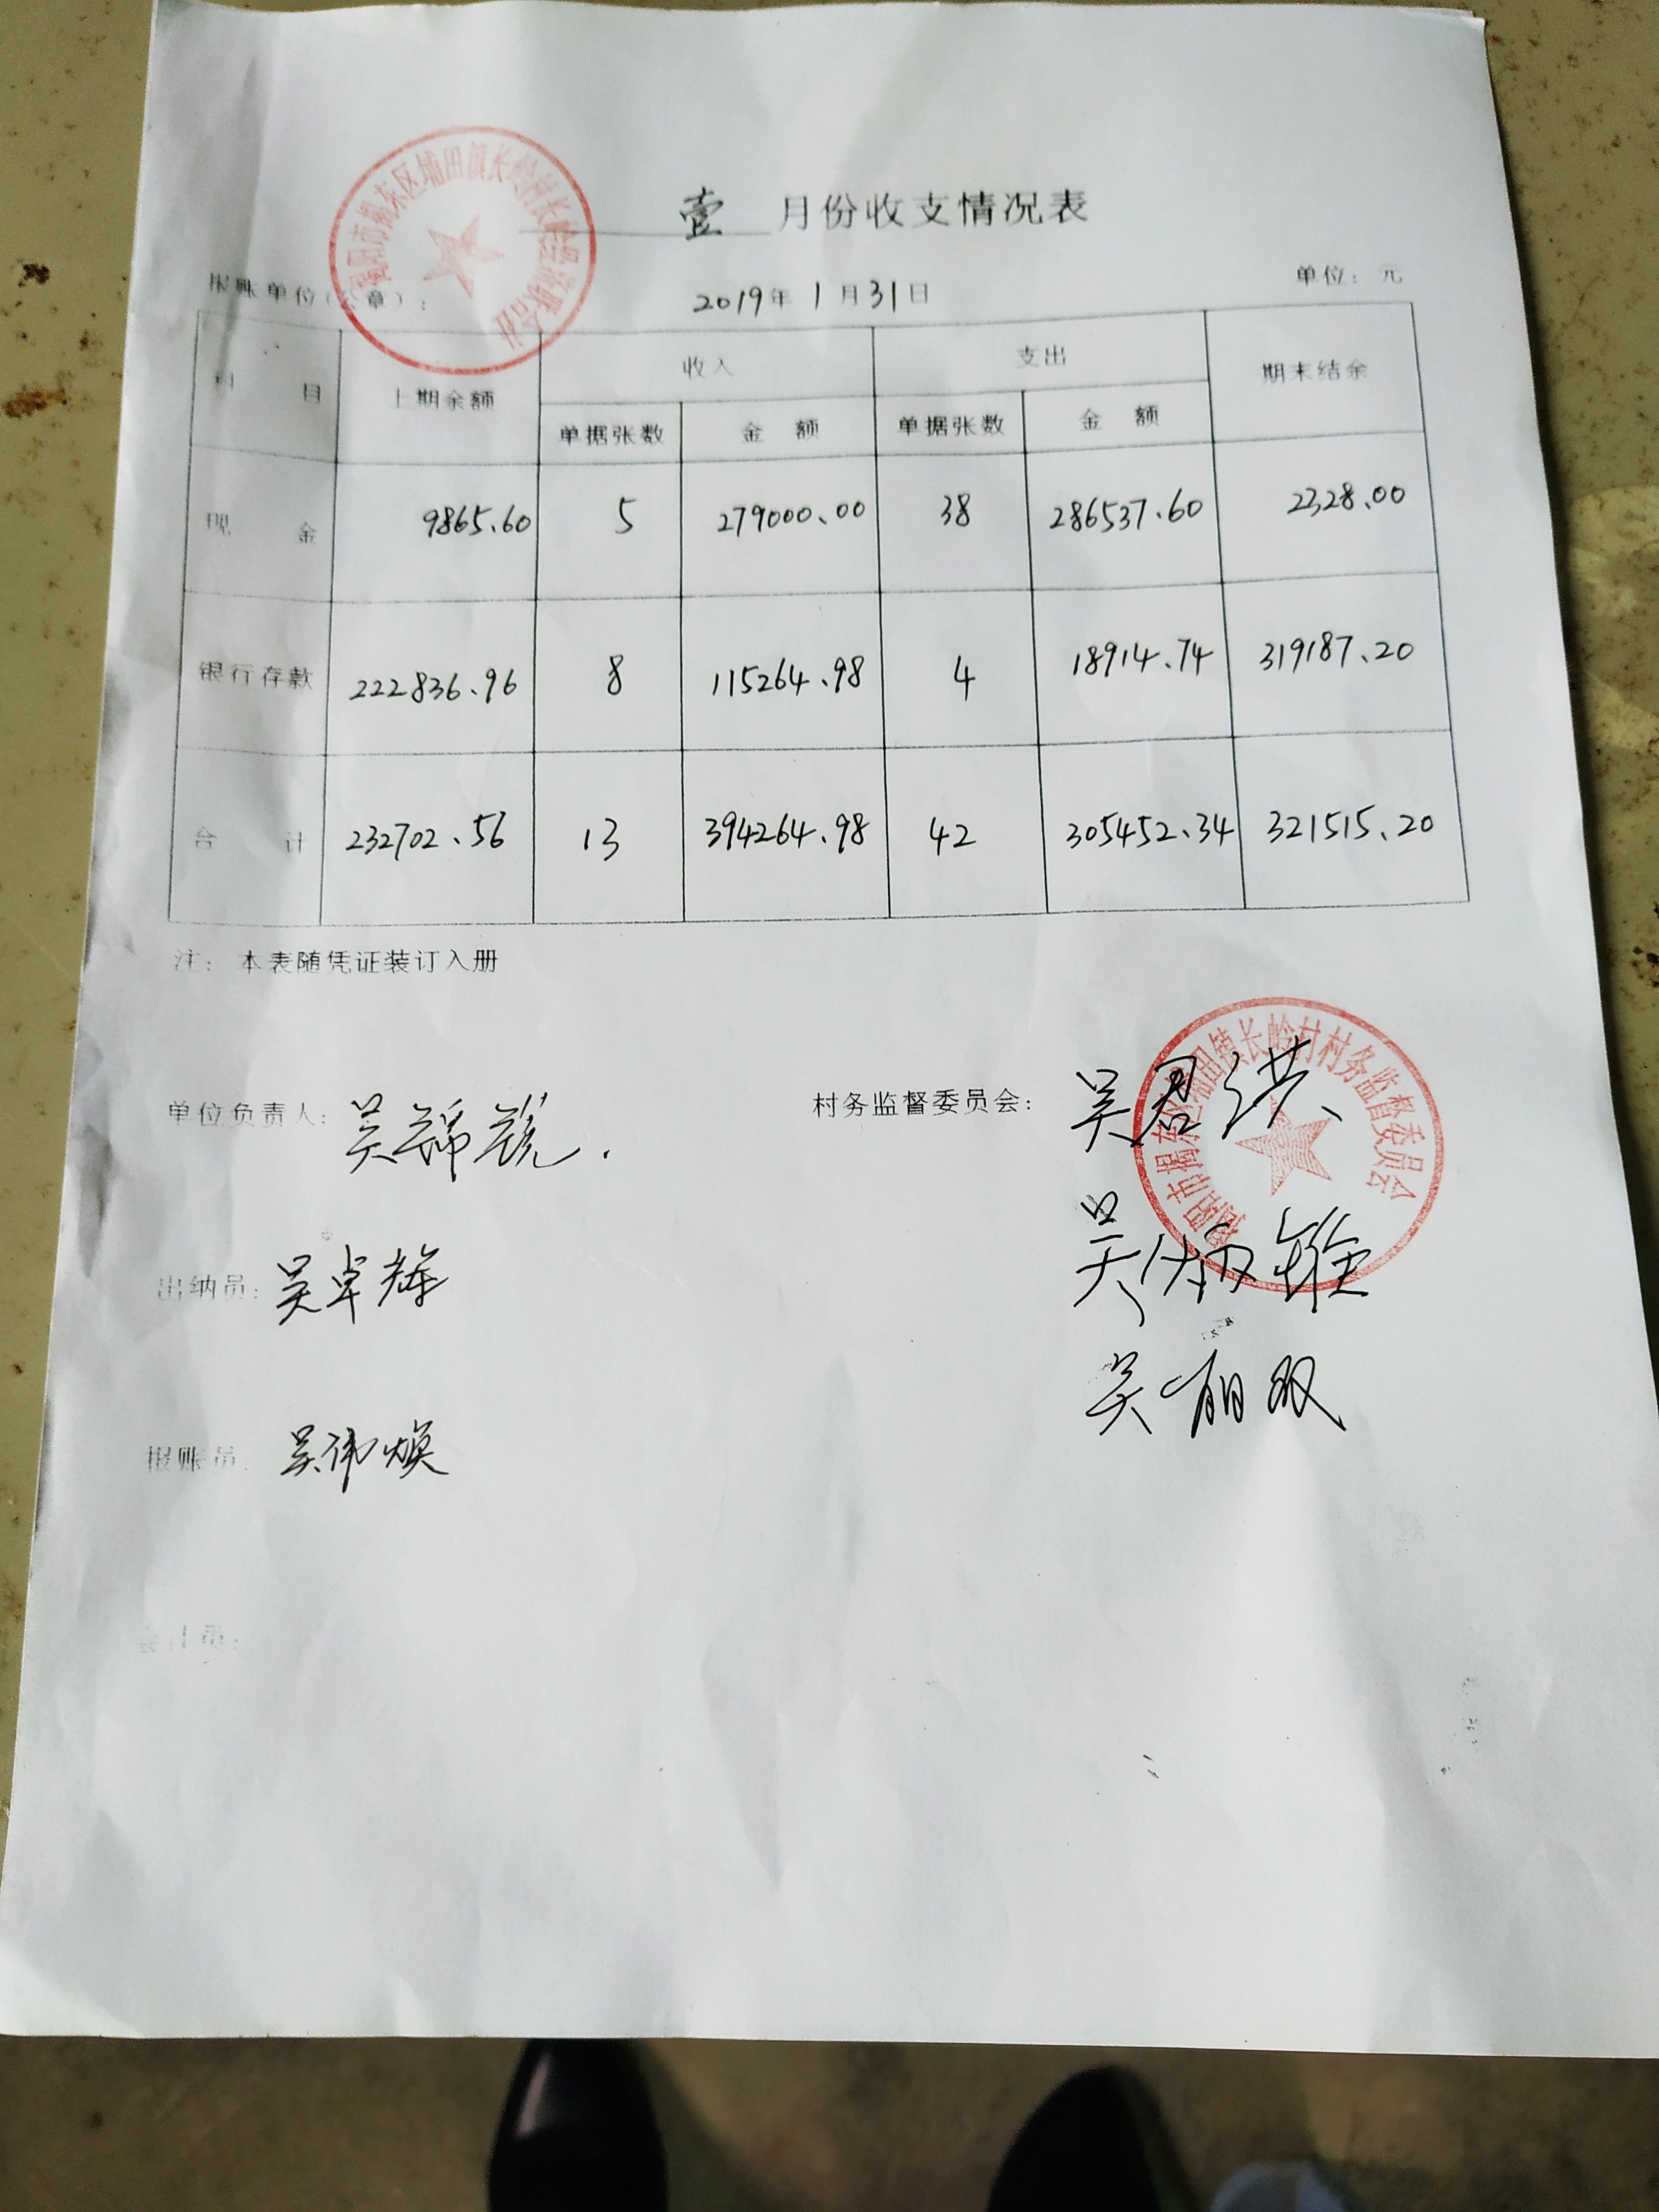 壹 月份收支情况表
报账单位(公章): 2019年1月31日 单位: 元
揭阳市揭东区埔田镇长岭村长岭经济联合社
科 目 上期余额 收入 支出 期末结余
单据张数 金 额 单据张数 金 额
现 金 9865.60 5 279000.00 38 286537.60 2328.00
银行存款 222836.96 8 115264.98 4 18914.74 319187.20
合 计 232702.56 13 394264.98 42 305452.34 321515.20
注: 本表随凭证装订入册
单位负责人: 吴 村务监督委员会: 吴君洪
揭阳市揭东区埔田镇长岭村村务监督委员会
出纳员: 吴卓辉 吴炳雄
报账员: 吴伟焕 吴
会计员: